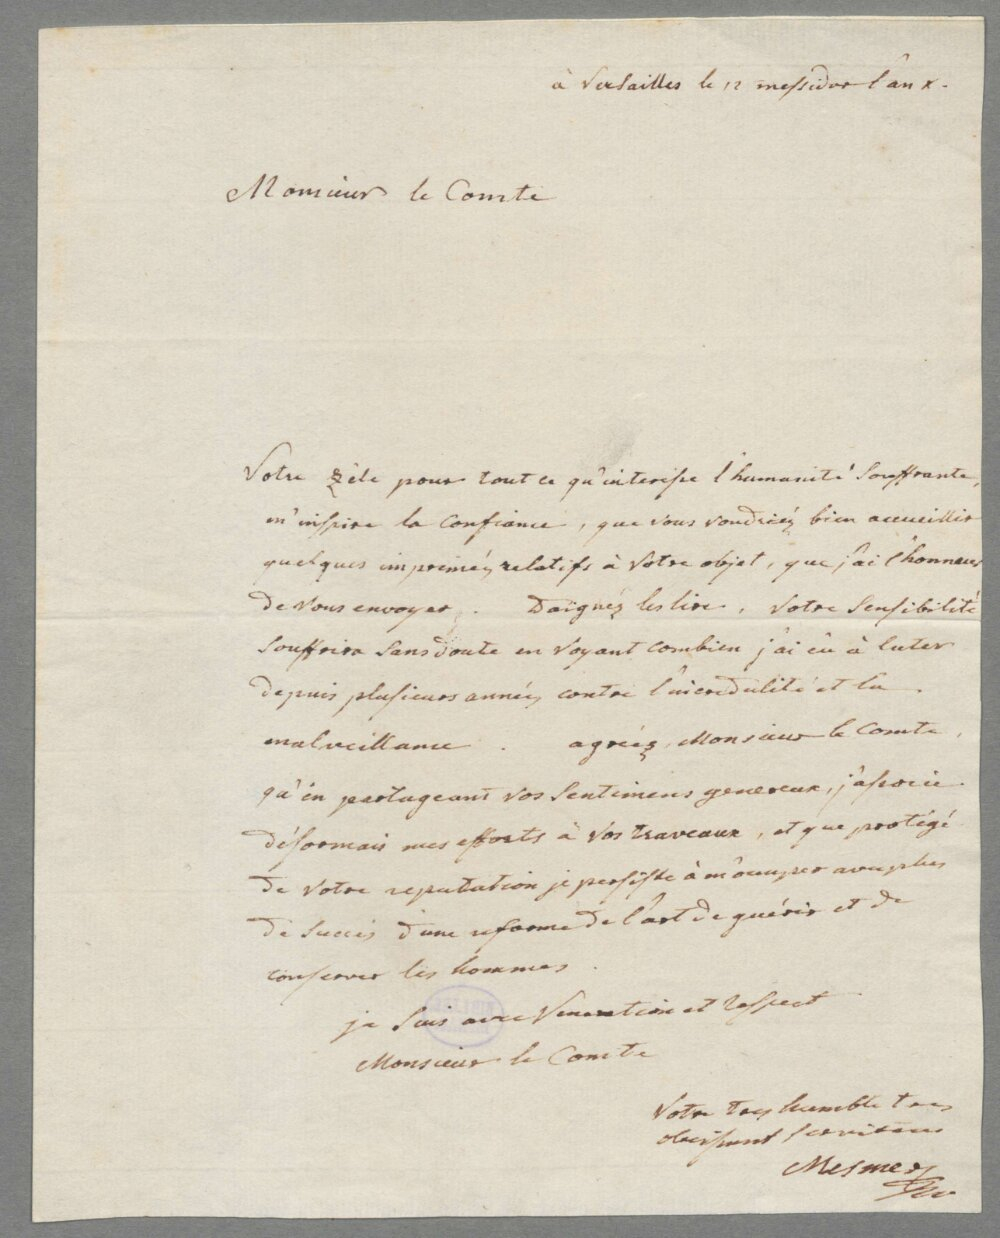 à Versailles le 12 messidor l'an X.
Monsieur le Comte
Votre zèle pour tout ce qu'interesse l'humanité souffrante,
m'inspire la confiance, que vous voudriéz bien accueillir
quelques impriméz relatifs à votre objet, que j'ai l'honneur
de vous envoyer. Daignéz les lire, votre sensibilité
souffrira sans doute en voyant combien j'ai eû à luter
depuis plusieurs années contre l'incredulité et la
malveillance. agréez, Monsieur le Comte,
qu'en partageant vos sentimens genereux, j'associe
désormais mes efforts à vos traveaux, et que protégé
de votre reputation je persiste à m'ôccuper avec plus
de succès d'une reforme de l'art de guérir et de
conserver les hommes.
je suis avec veneration et respect
Monsieur le Comte
Votre tres humble tres
obeissant serviteur
Mesmer